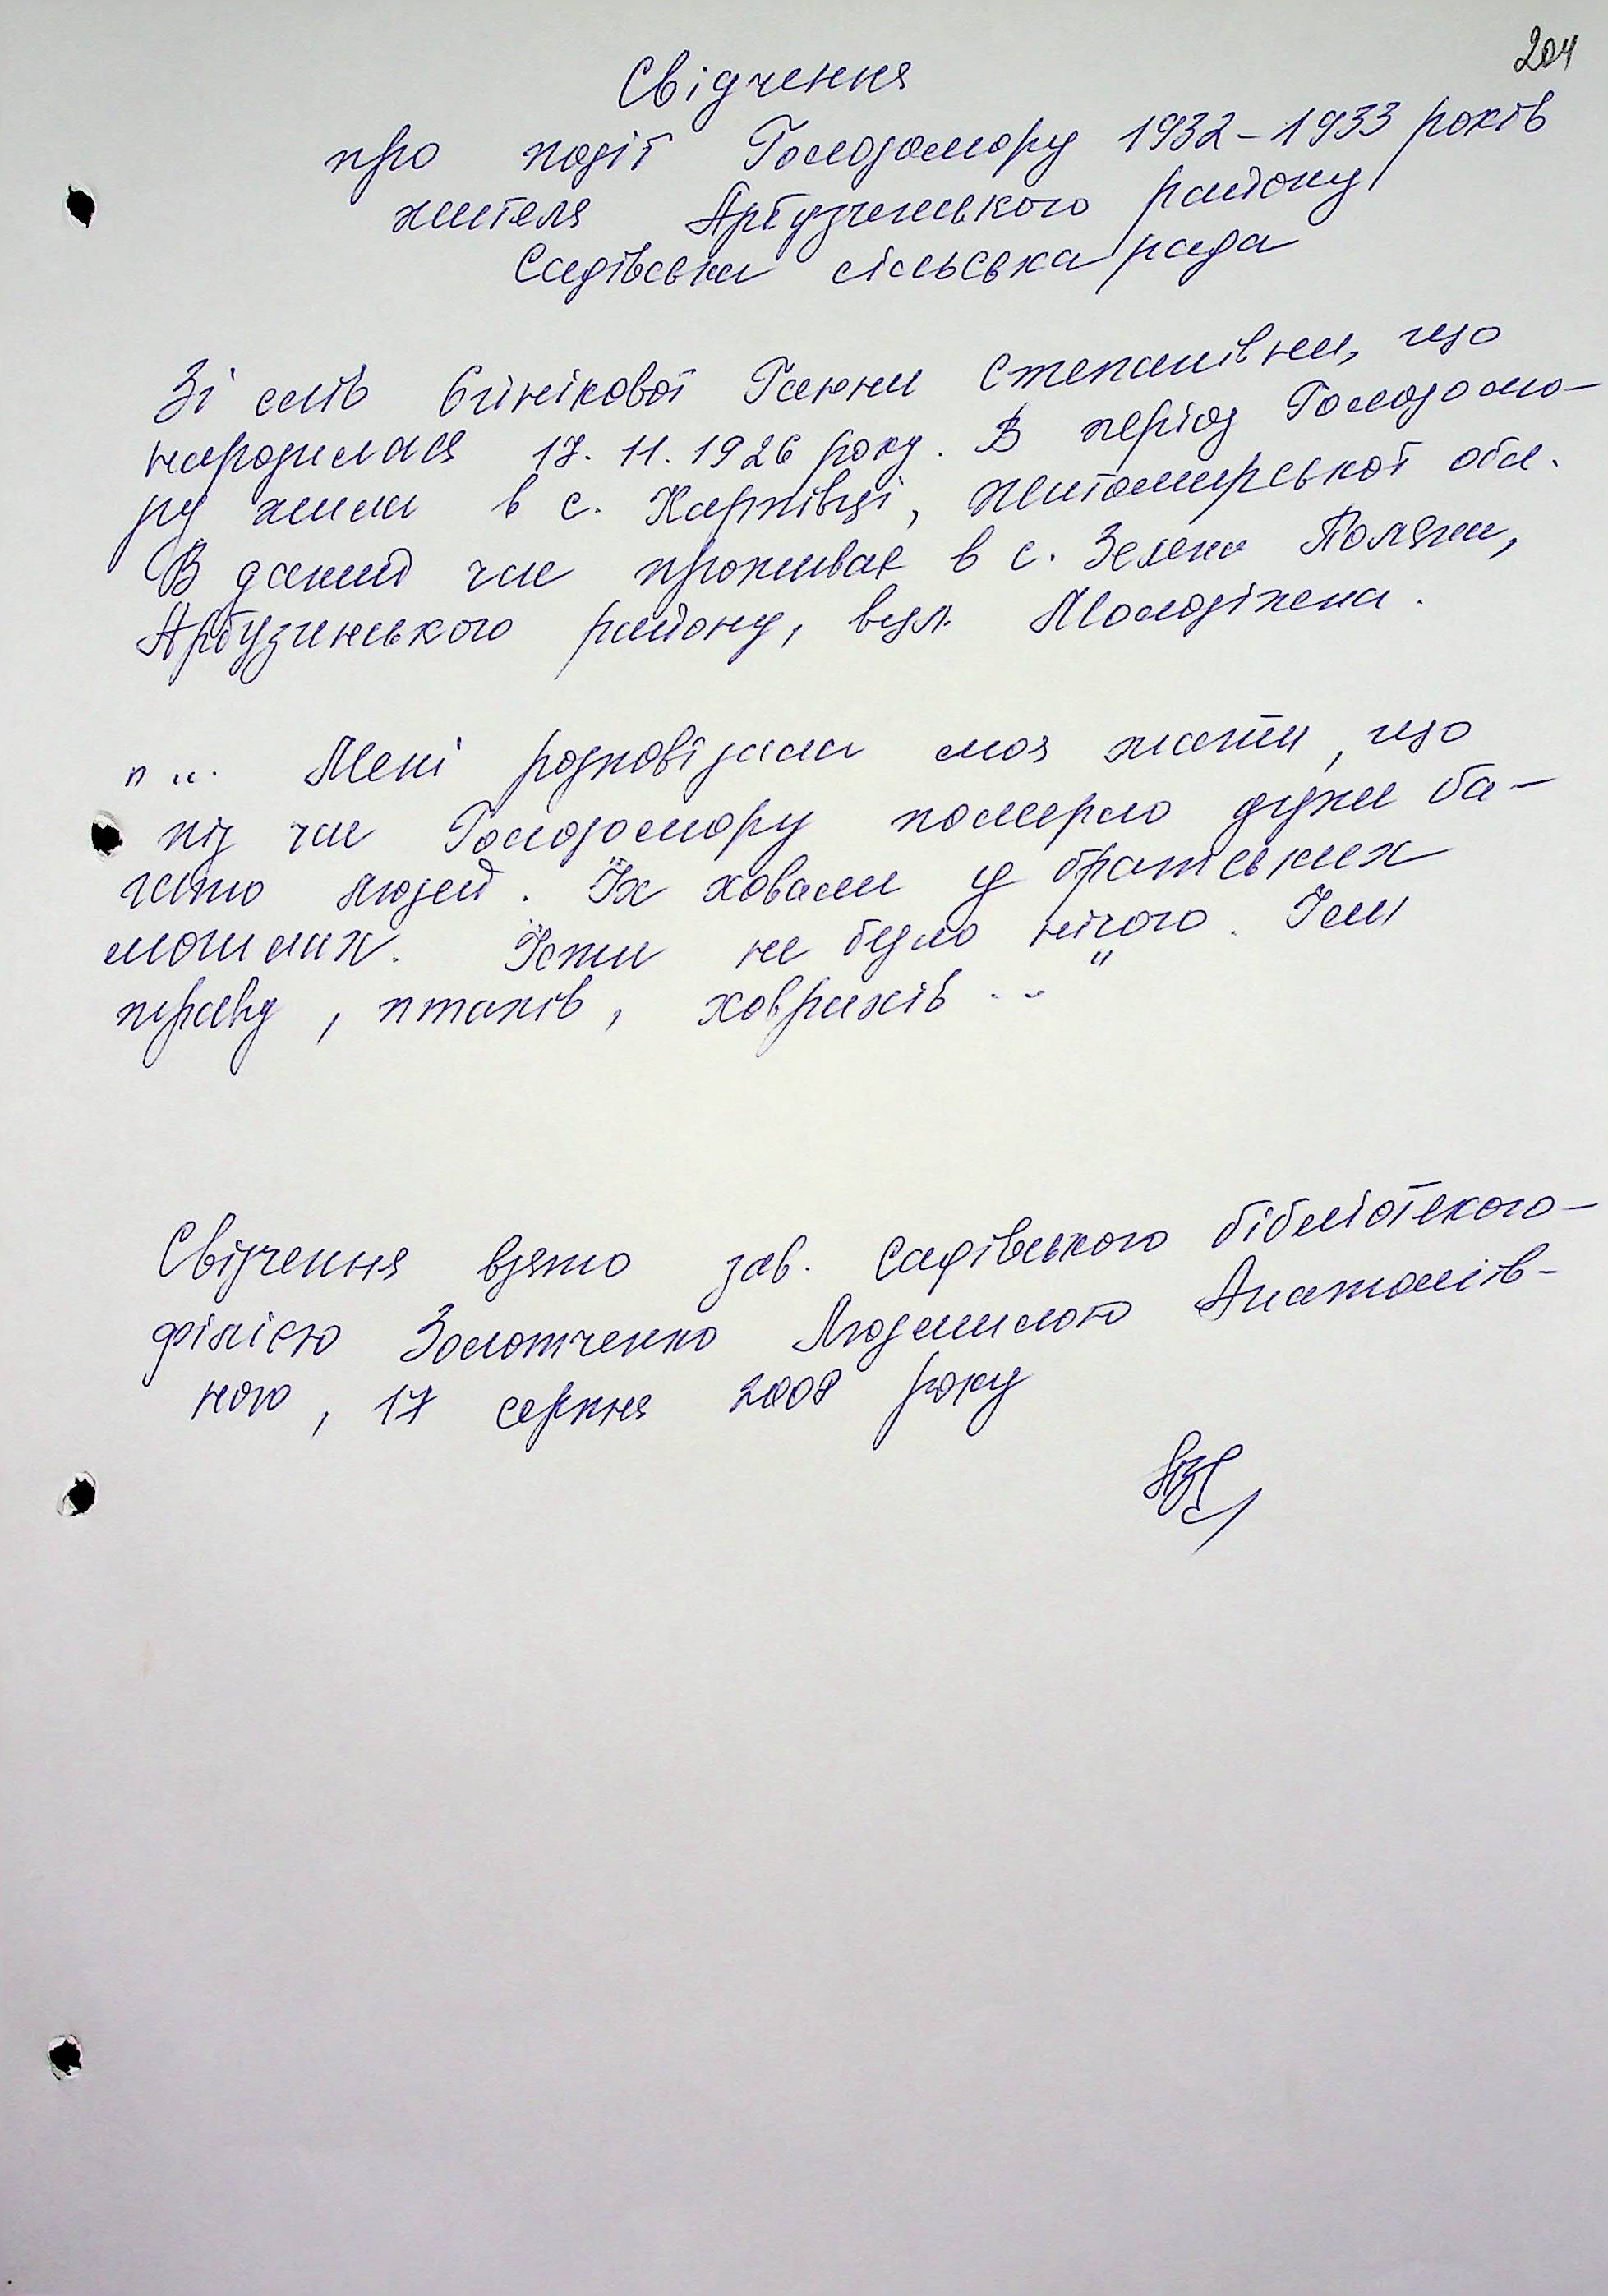 204
Свідчення
про події Голодомору 1932-1933 років
жителя Арбузинського району
Садівська сільська рада
Зі слів Ганни Степанівни, що
народилася 17.11.1926 року. В період Голодомо-
ру жила в с. Карпівці, Житомирської обл.
В даний час проживає в с. Зелена Поляна,
Арбузинського району, вул. Молодіжна.
"... Мені розповідала моя мати, що
під час Голодомору померло дуже ба-
гато людей. Їх ховали у братських
могилах. Їсти не було нічого. Їли
траву, птахів, ховрахів..."
Свідчення взято зав. Садівського бібліотекого-
філією Золотченко Людмилою Анатолів-
ною, 17 серпня 2008 року